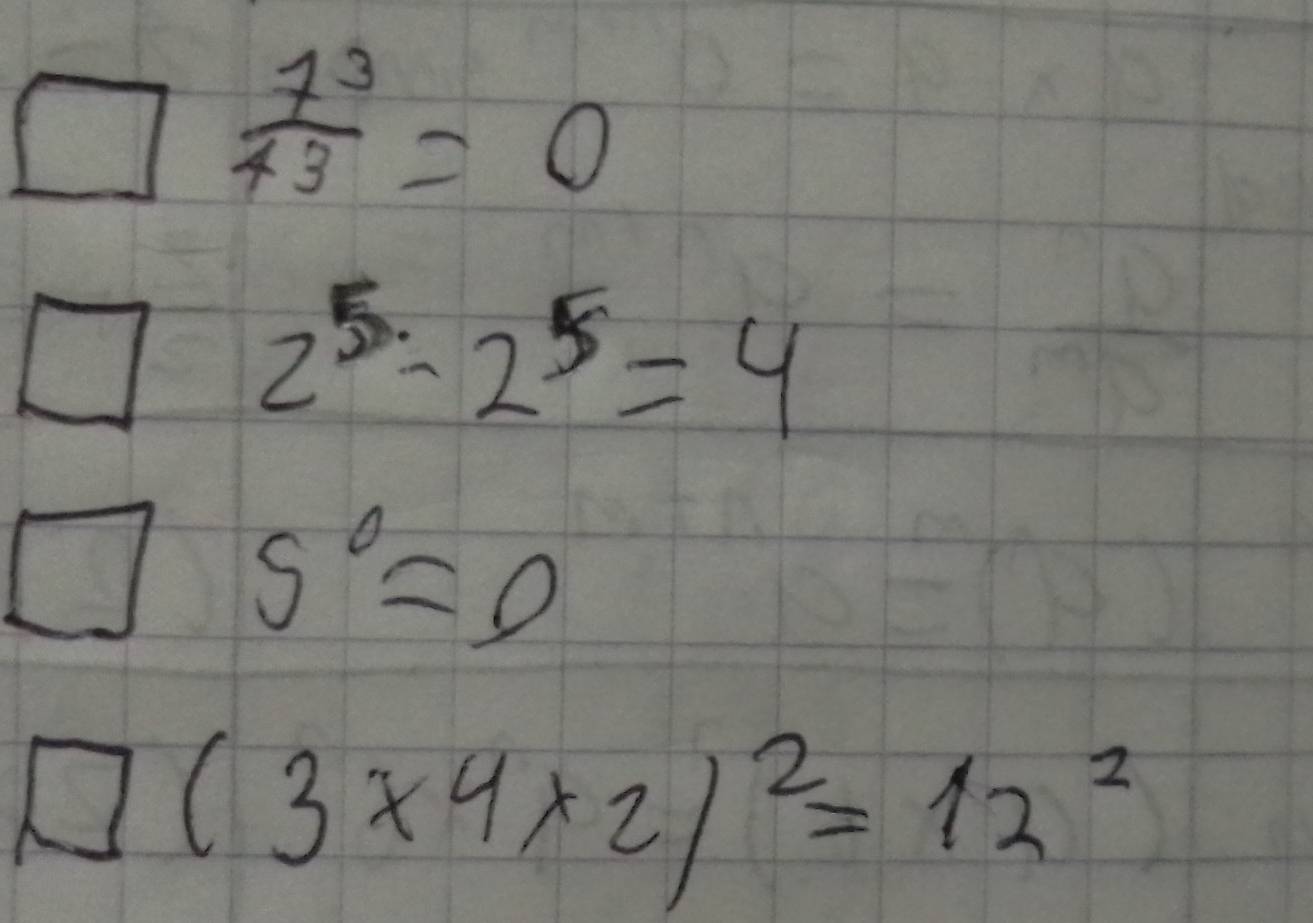 □ 7³/7³ = 0
□ 2⁵ - 2⁵ = 4
□ 5⁰ = 0
□ (3 x 4 x 2)² = 12²